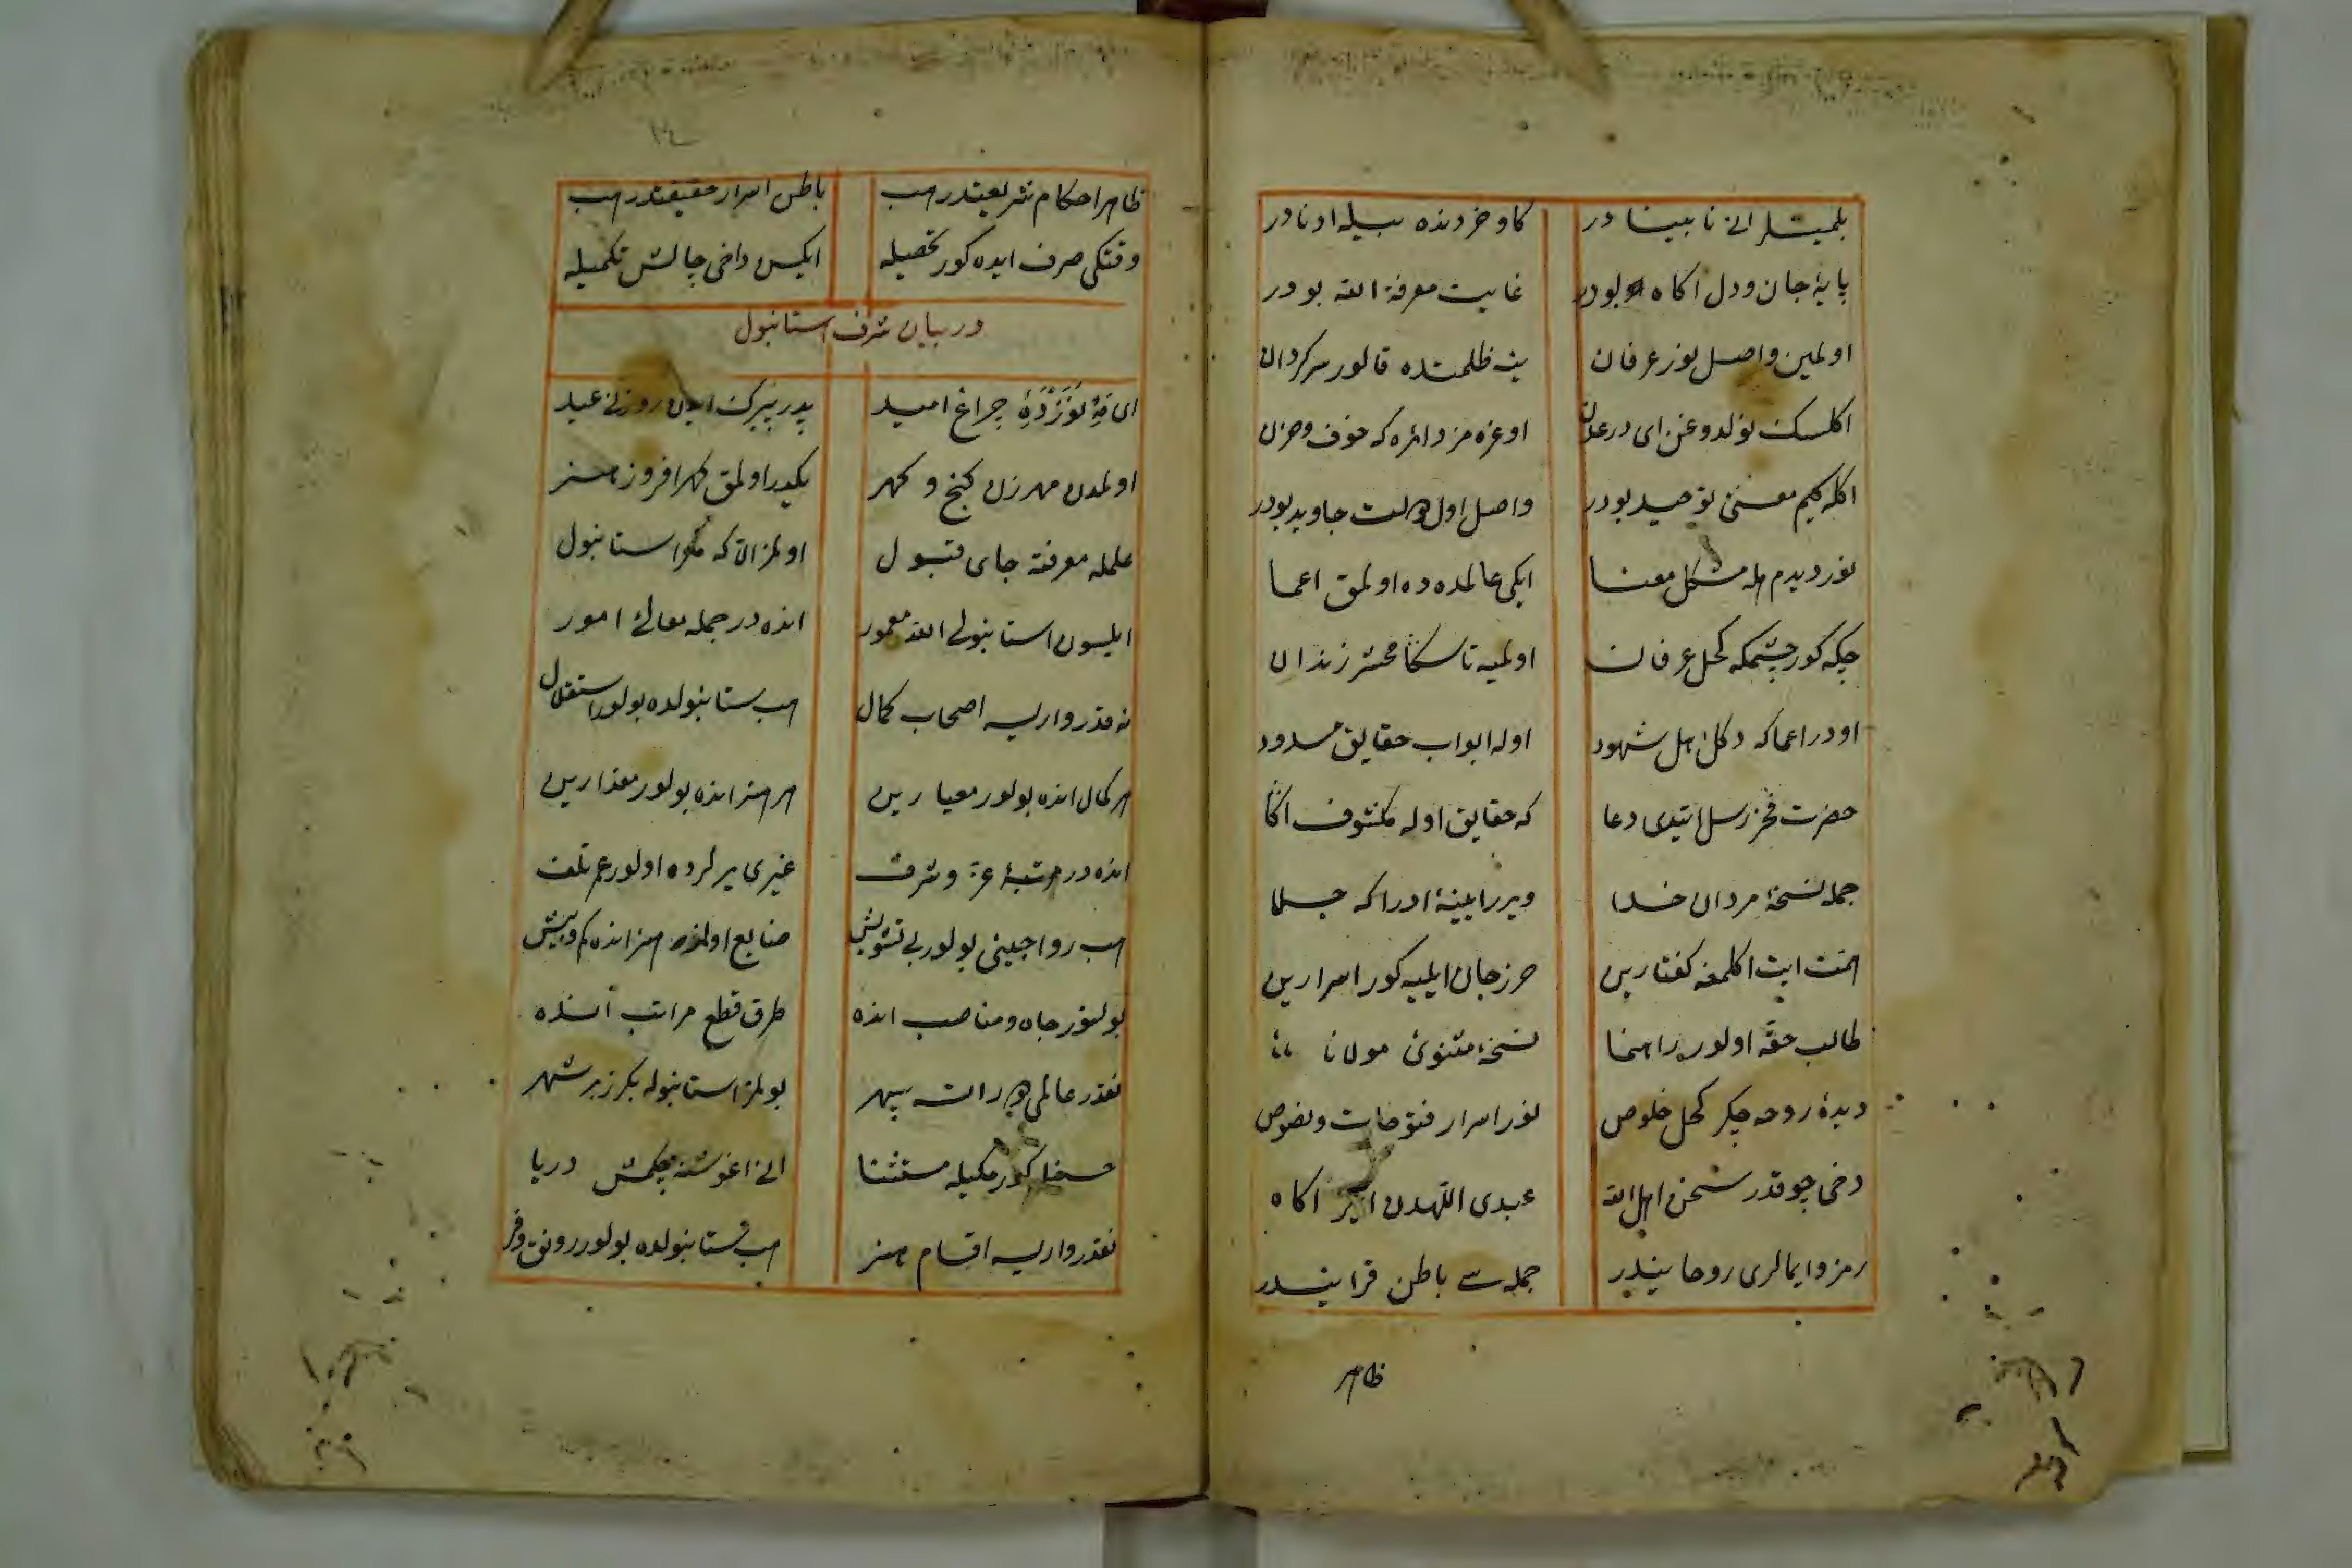 بلمينلر انى نابينا در كاو خردنده بيله اونادر
پايهٔ جان ودل اكاه بودر غايت معرفة الله بودر
اولمين واصل نور عرفان ينه ظلمتده قالور سركردان
اكلسك نولدوغن اى در عدن اوغزه مز دائره كه خوف وحزن
اكله كيم معنئ توحيد بودر واصل اول دولت جاويد بودر
نور ديدم هله مشكل معنا ايكى عالمده ده اولمق اعما
چكه كور چشمكه كحل عرفان اولميه تا سكا محشر زندان
اودر اعما كه دكل اهل شهود اوله ابواب حقايق مسدود
حضرت فخر رسل ايتدى دعا كه حقايق اوله مكشوف اكا
جمله نسخهٔ مردان خدا ويرر ايينهٔ ادراكه جلا
همت ايت اكلمغه كفتارين حرز جان ايليه كور اسرارين
طالب حقه اولور راهنما نسخهٔ مثنوئ مولانا
ديدهٔ روحه چكر كحل خلوص نور اسرار فتوحات ونصوص
دخى چوقدر سخن اهل الله عبدى اللهدن اكاه
رمز وايمالرى روحانيدر جمله سے باطن قرانيدر
ظاهر
١٤
ظاهر احكام شريعتدر هب باطن اسرار حقيقتدر هب
وقتكى صرف ايده كور تحصيله ايكسن داخى چالش تكميله
در بيان شرف استانبول
اى مهٔ نوزدهٔ چراغ اميد پدر پيرك ايدن روزنى عيد
اولمدن مهرزن كنج و كهر يكدر اولمق كهر افروز هنر
علمله معرفته جاى قبول اولمز الا كه مكر استانبول
ايلسون استانبولى الله معمور انده در جمله معالئ امور
نه قدر واريسه اصحاب كمال هب ستانبولده بولور استقلال
هر كمال انده بولور معيارين هر هنر انده بولور مقدارين
انده در مرتبهٔ عز وشرف غيرى يرلرده اولور عمر تلف
هب رواجينى بولور بى تشويش ضايع اولمز هنر انده كم وبيش
بولنور جاه ومناصب انده طرق قطع مراتب انده
نقدر عالمى دور ايتسه سپهر بولمز استانبوله بكزر بر شهر
حسنله كوركيله مستثنا انى اغوشنه چكمش دريا
نقدر واريسه اقسام هنر هب ستانبولده بولور رونق وفر